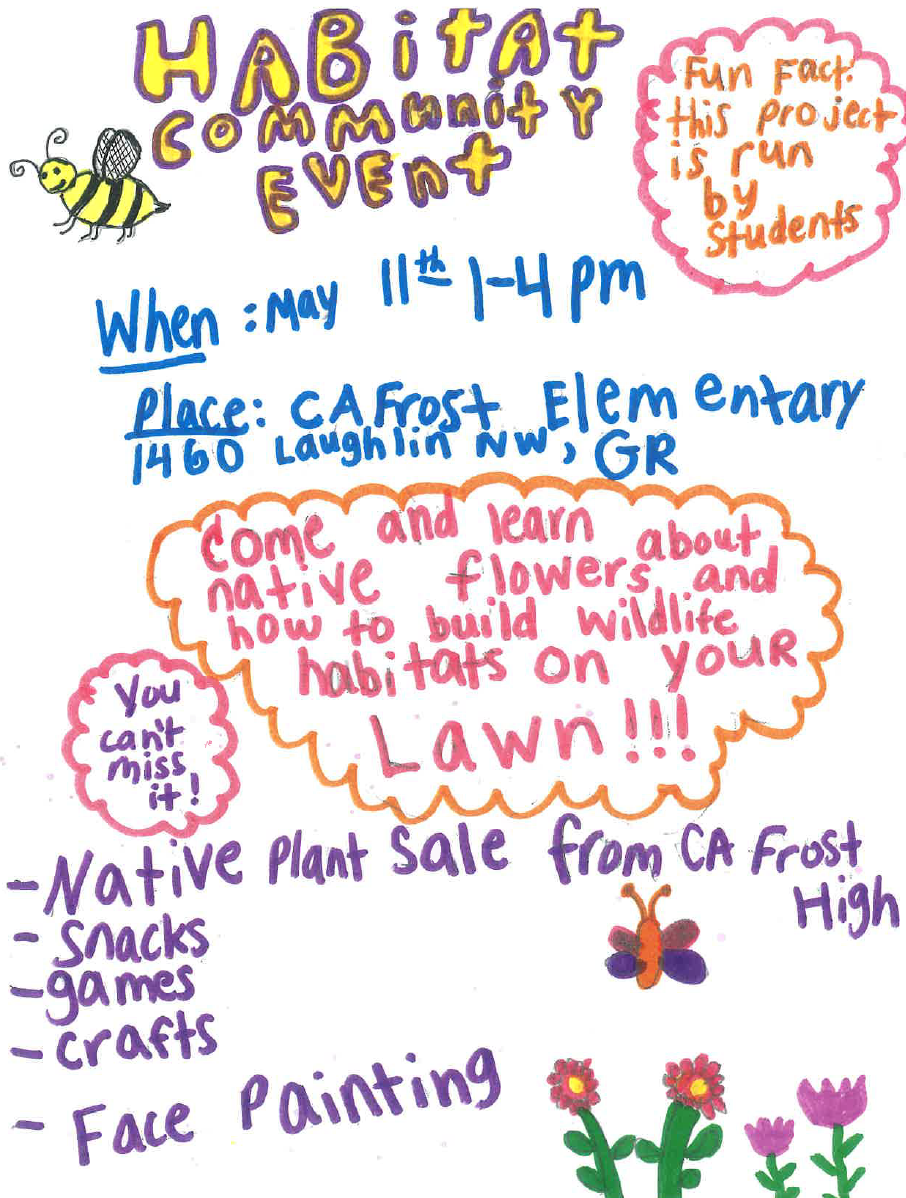 HABitAt
COMMunitY
EVEnt
Fun Fact:
this project
is run
by
Students
When : May 11th 1-4 pm
Place: CA Frost Elementary
1460 Laughlin NW, GR
Come and learn about
native flowers and
how to build wildlife
habitats on your
Lawn!!!
You
can't
miss
it!
- Native Plant Sale from CA Frost
High
- Snacks
- games
- crafts
- Face Painting